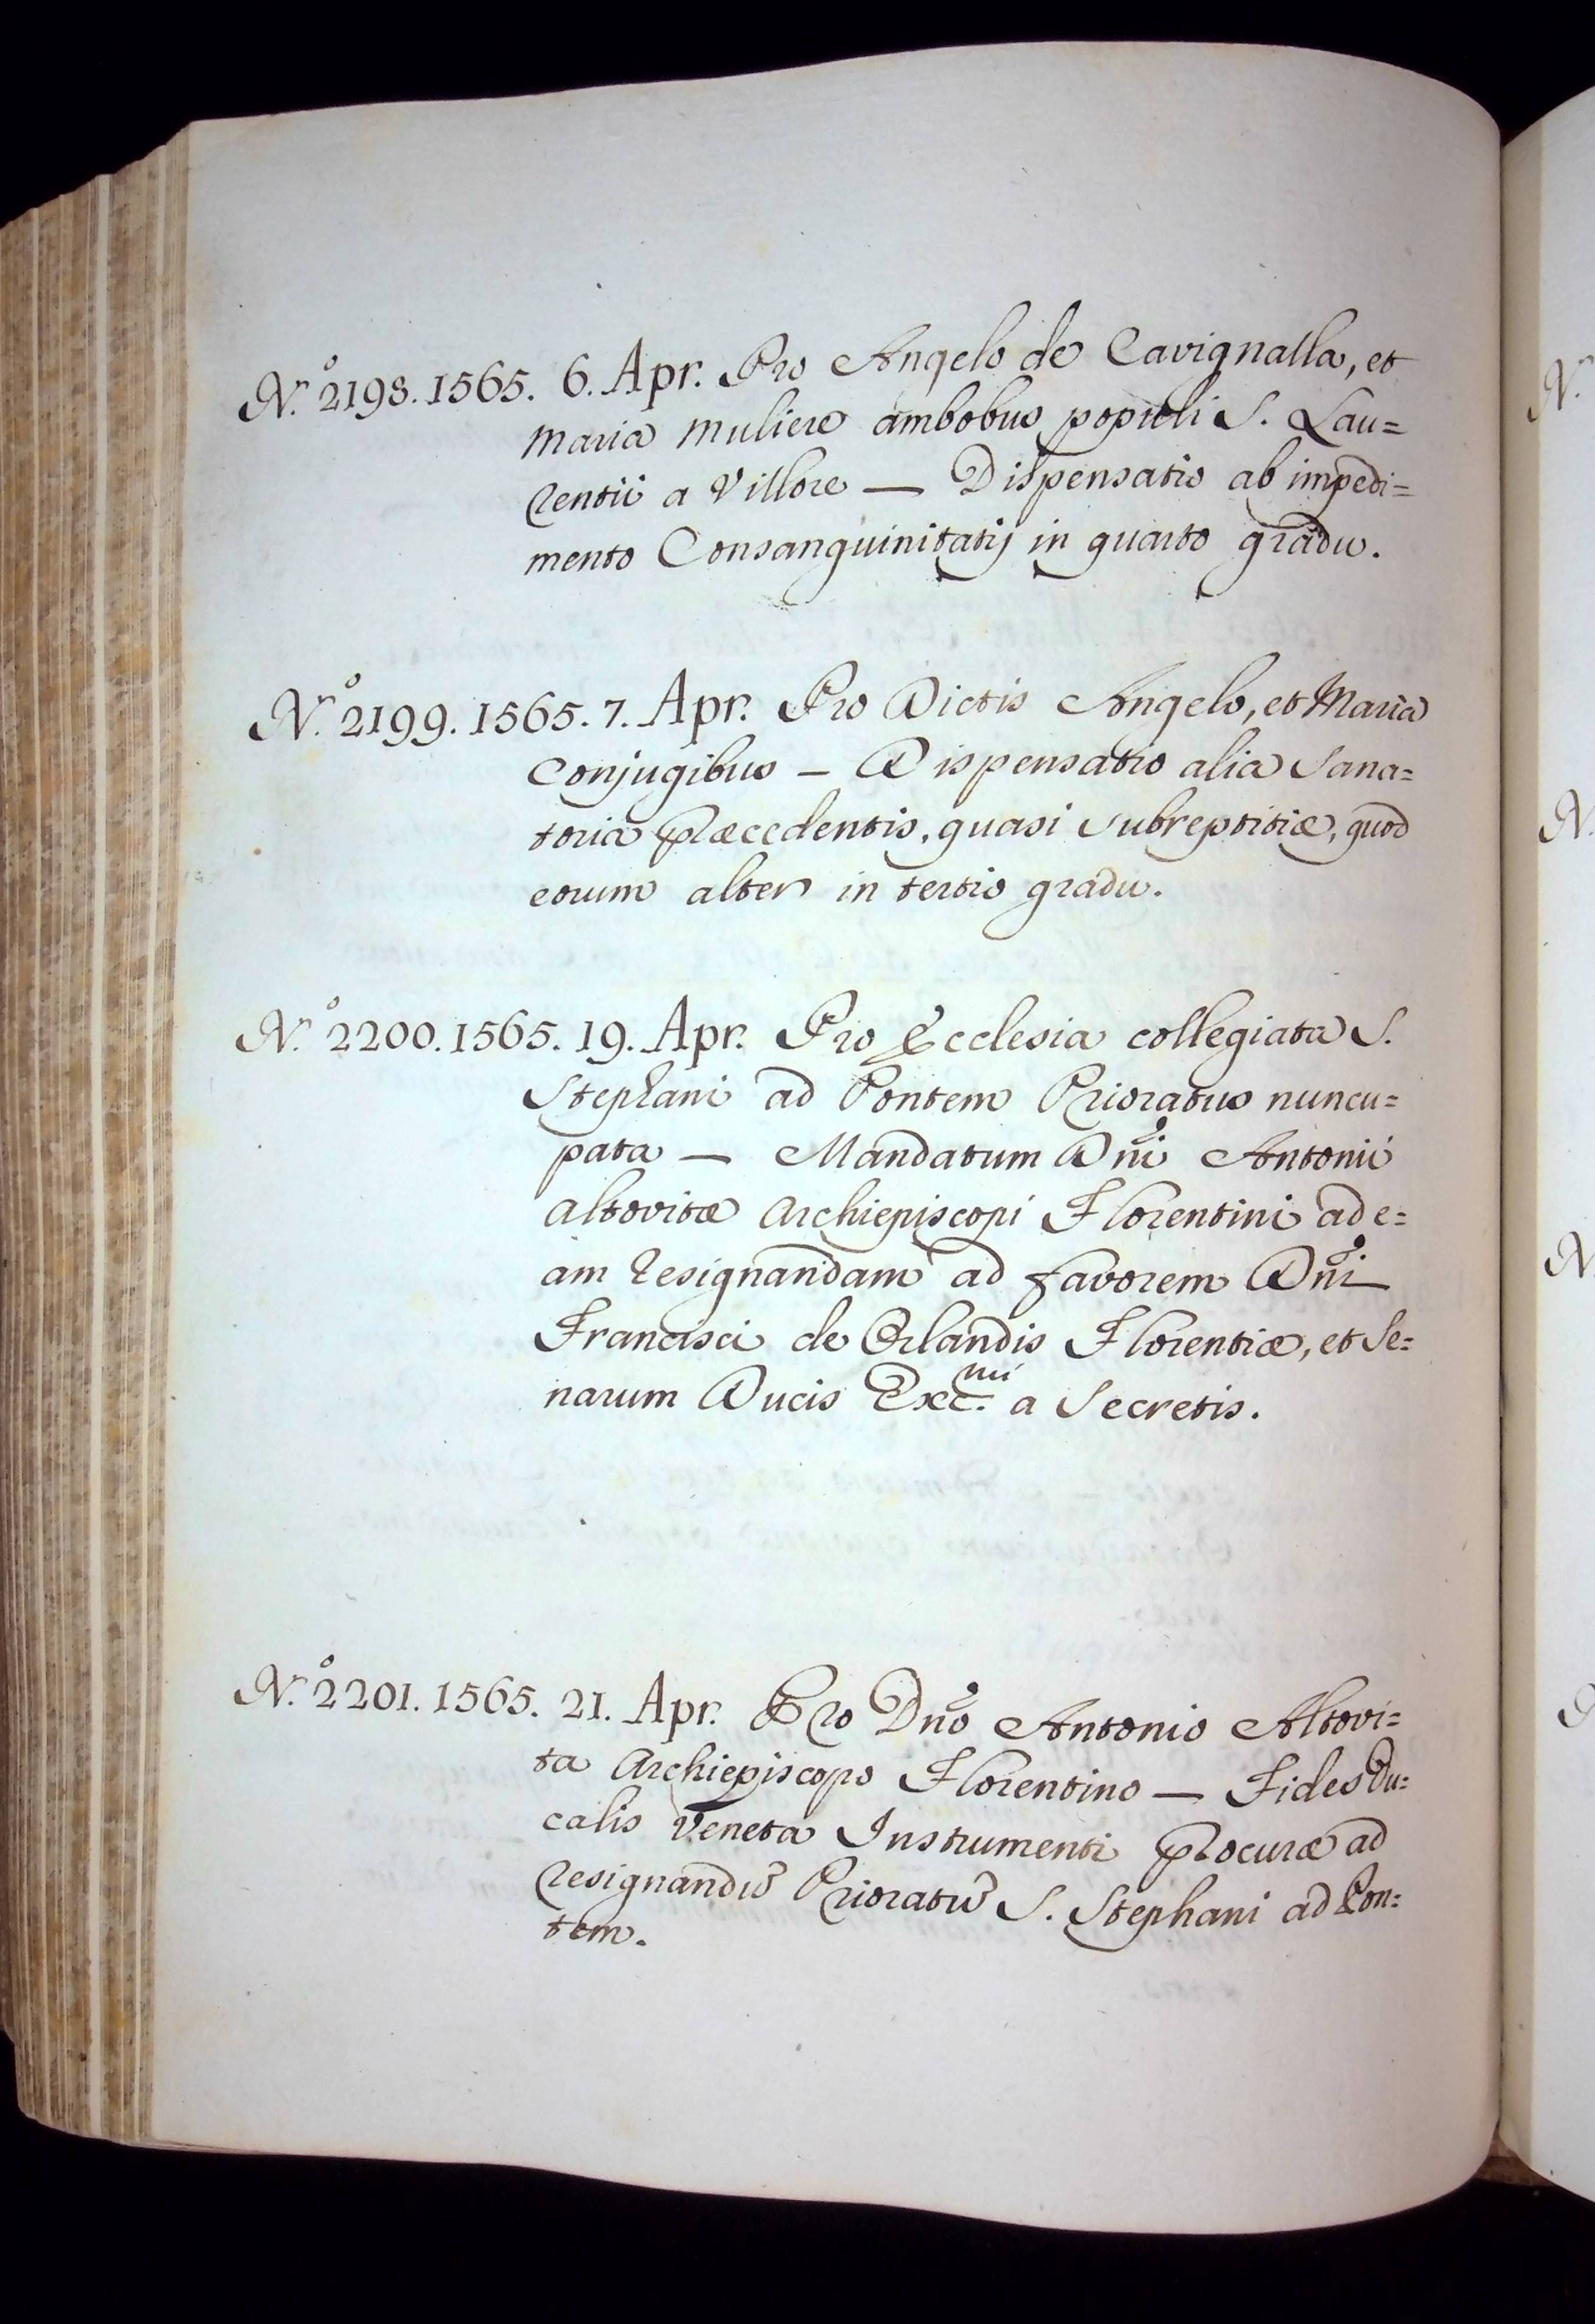 N.º 2198. 1565. 6. Apr. Pro Angelo de Cavignalla, et
Maria Muliere ambobus populi S. Lau=
rentii a Villore — Dispensatio ab impedi=
mento Consanguinitatis in quarto gradu.
N.º 2199. 1565. 7. Apr. Pro Dictis Angelo, et Maria
Conjugibus — Dispensatio alia Sana=
toria præcedentis, quasi subreptitiæ, quod
eorum alter in tertio gradu.
N.º 2200. 1565. 19. Apr. Pro Ecclesia collegiata S.
Stephani ad Pontem Prioratus nuncu=
pata — Mandatum Dñi Antonii
Altovitæ Archiepiscopi Florentini ad e=
am resignandam ad favorem Dñi
Francisci de Orlandis Florentiæ, et Se=
narum Ducis Exc.mi a Secretis.
N.º 2201. 1565. 21. Apr. Pro Dño Antonio Altovi=
ta Archiepiscopo Florentino — Fides Du=
calis Veneta Instrumenti procuræ ad
resignandũ Prioratũ S. Stephani ad Pon=
tem.
N.
N.
N